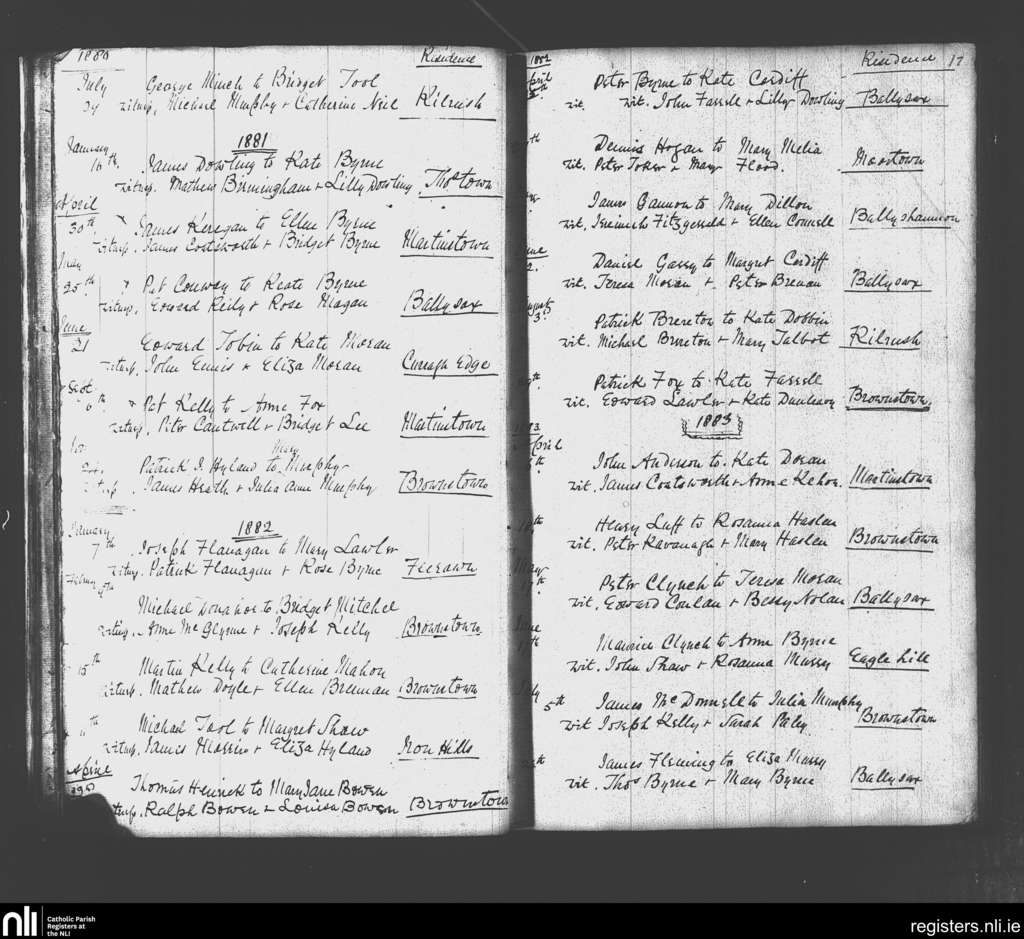 1880
Residence
July
George Minch to Bridget Tool
29 witnesp, Michael Murphy + Catherine Neil Kilrush
1881
January
16th James Dowling to Kate Byrne
witnesp. Mathew Birmingham + Lilly Dowling Thos town
April
30th James Keregan to Ellen Byrne
witnesp. James Coatsworth + Bridget Byrne Martinstown
May
25th Pat Conway to Keate Byrne
witnesp, Edward Reily + Rose Magan Ballysax
June
21 Edward Tobin to Kate Moran
witnesp. John Ennis + Eliza Moran Curragh Edge
Sept
6th Pat Kelly to Anne Fox
witnesp, Peter Cantwell + Bridget Lee Martinstown
Nov
Mary
24 Patrick J. Hyland to Murphy
James Heath + Julia Anne Murphy Brownstown
1882
January
7th Joseph Flanagan to Mary Lawler
witnesp. Patrick Flanagan + Rose Byrne
Michael Donahoe to Bridget Mitchel
witnesp. Anne Mc Glynne + Joseph Kelly Brownstown
15th Martin Kelly to Catherine Mahon
witnesp. Mathew Doyle + Ellen Brennan Brownstown
th Michael Tool to Margret Shaw
witnesp. James + Eliza Hyland Iron Hills
Thomas to Mary Jane Bowen
witnesp. Ralph Bowen + Louisa Bowen Brownstown
1882 Residence 17
April
Peter Byrne to Kate Cardiff
wit. wit. John Farrell + Lilly Dowling Ballysax
th Dennis Hogan to Mary Melia
wit. Peter + Mary Flood. Moortown
James Gannon to Mary Dillon
wit. Jeremiah Fitzgerald + Ellen Connell Ballyshannon
Daniel to Margret Cardiff
wit. Teresa Moran + Peter Brenan Ballysax
August
3 Patrick Brereton to Kate Dobbin
wit. Michael Brereton + Mary Talbot Kilrush
th Patrick Fox to Kate Farrell
wit. Edward Lawler + Kate Dunleavy Brownstown
1883
April
th John Anderson to Kate Doran
wit. James Coatsworth + Anne Kehoe. Martinstown
th Henry Luff to Rosanna Haslen
wit. Peter Kavanagh + Mary Haslen Brownstown
May
th Peter Clynch to Teresa Moran
wit. Edward Conlan + Bessy Nolan Ballysax
June
th Maurice Clynch to Anne Byrne
wit. John Shaw + Rosanna Eagle hill
July
5th James Mc Donnell to Julia Murphy
wit Joseph Kelly + Sarah Brownstown
th James Fleming to Eliza
wit. Thos Byrne + Mary Byrne Ballysax
nli Catholic Parish
Registers at
the NLI
registers.nli.ie